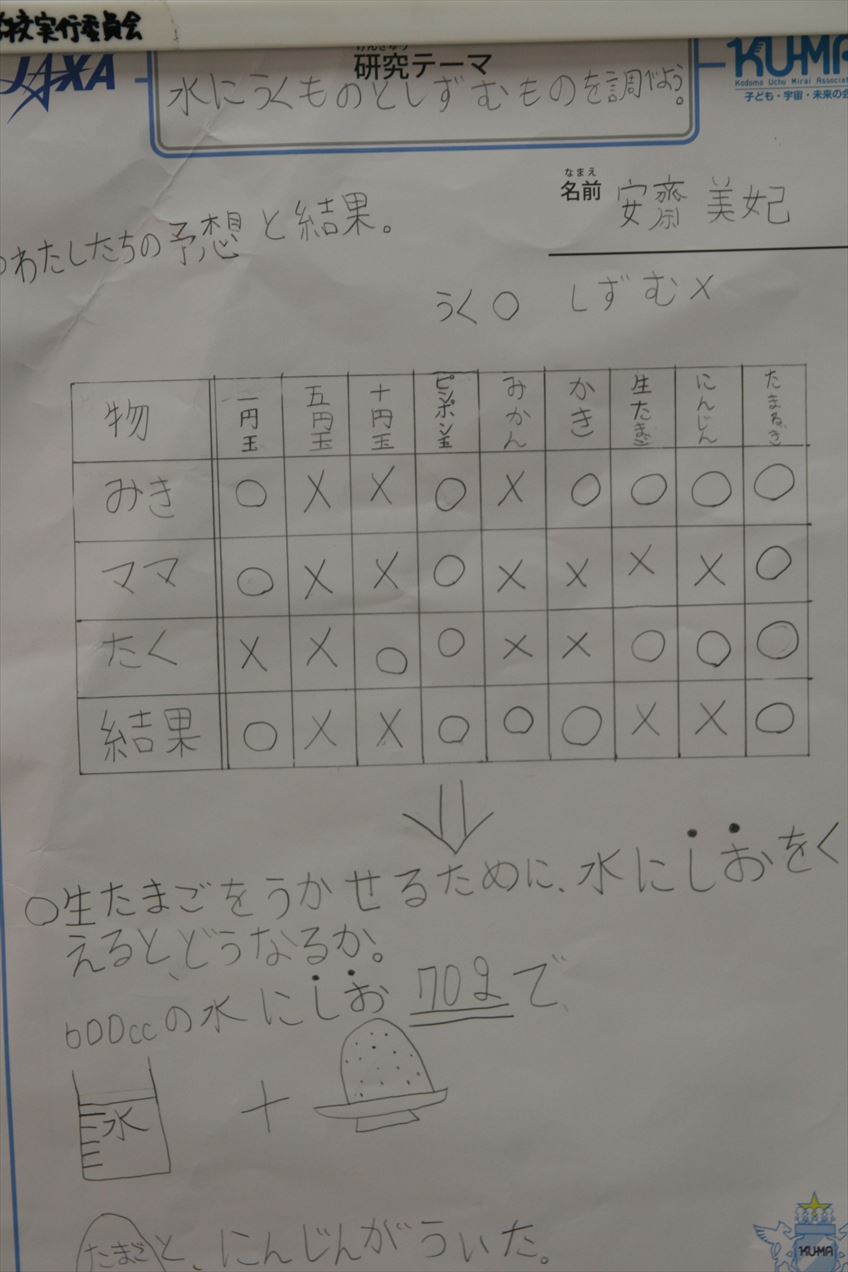 校実行委員会
JAXA
けんきゅう
研究テーマ
KU-MA
Kodomo Uchu Mirai Associat
子ども・宇宙・未来の会
水にうくものとしずむものを調べよう。
なまえ
名前 安齋 美妃
○わたしたちの予想と結果。
うく○ しずむ×
物 一円玉 五円玉 十円玉 ピンポン玉 みかん かき 生たまご にんじん たまねぎ
みき ○ × × ○ × ○ ○ ○ ○
ママ ○ × × ○ × × × × ○
たく × × ○ ○ × × ○ ○ ○
結果 ○ × × ○ ○ ○ × × ○
○生たまごをうかせるために、水にしおをく
えると、どうなるか。
600ccの水にしお70gで、
水 +
たまごと、にんじんがういた。
KU-MA